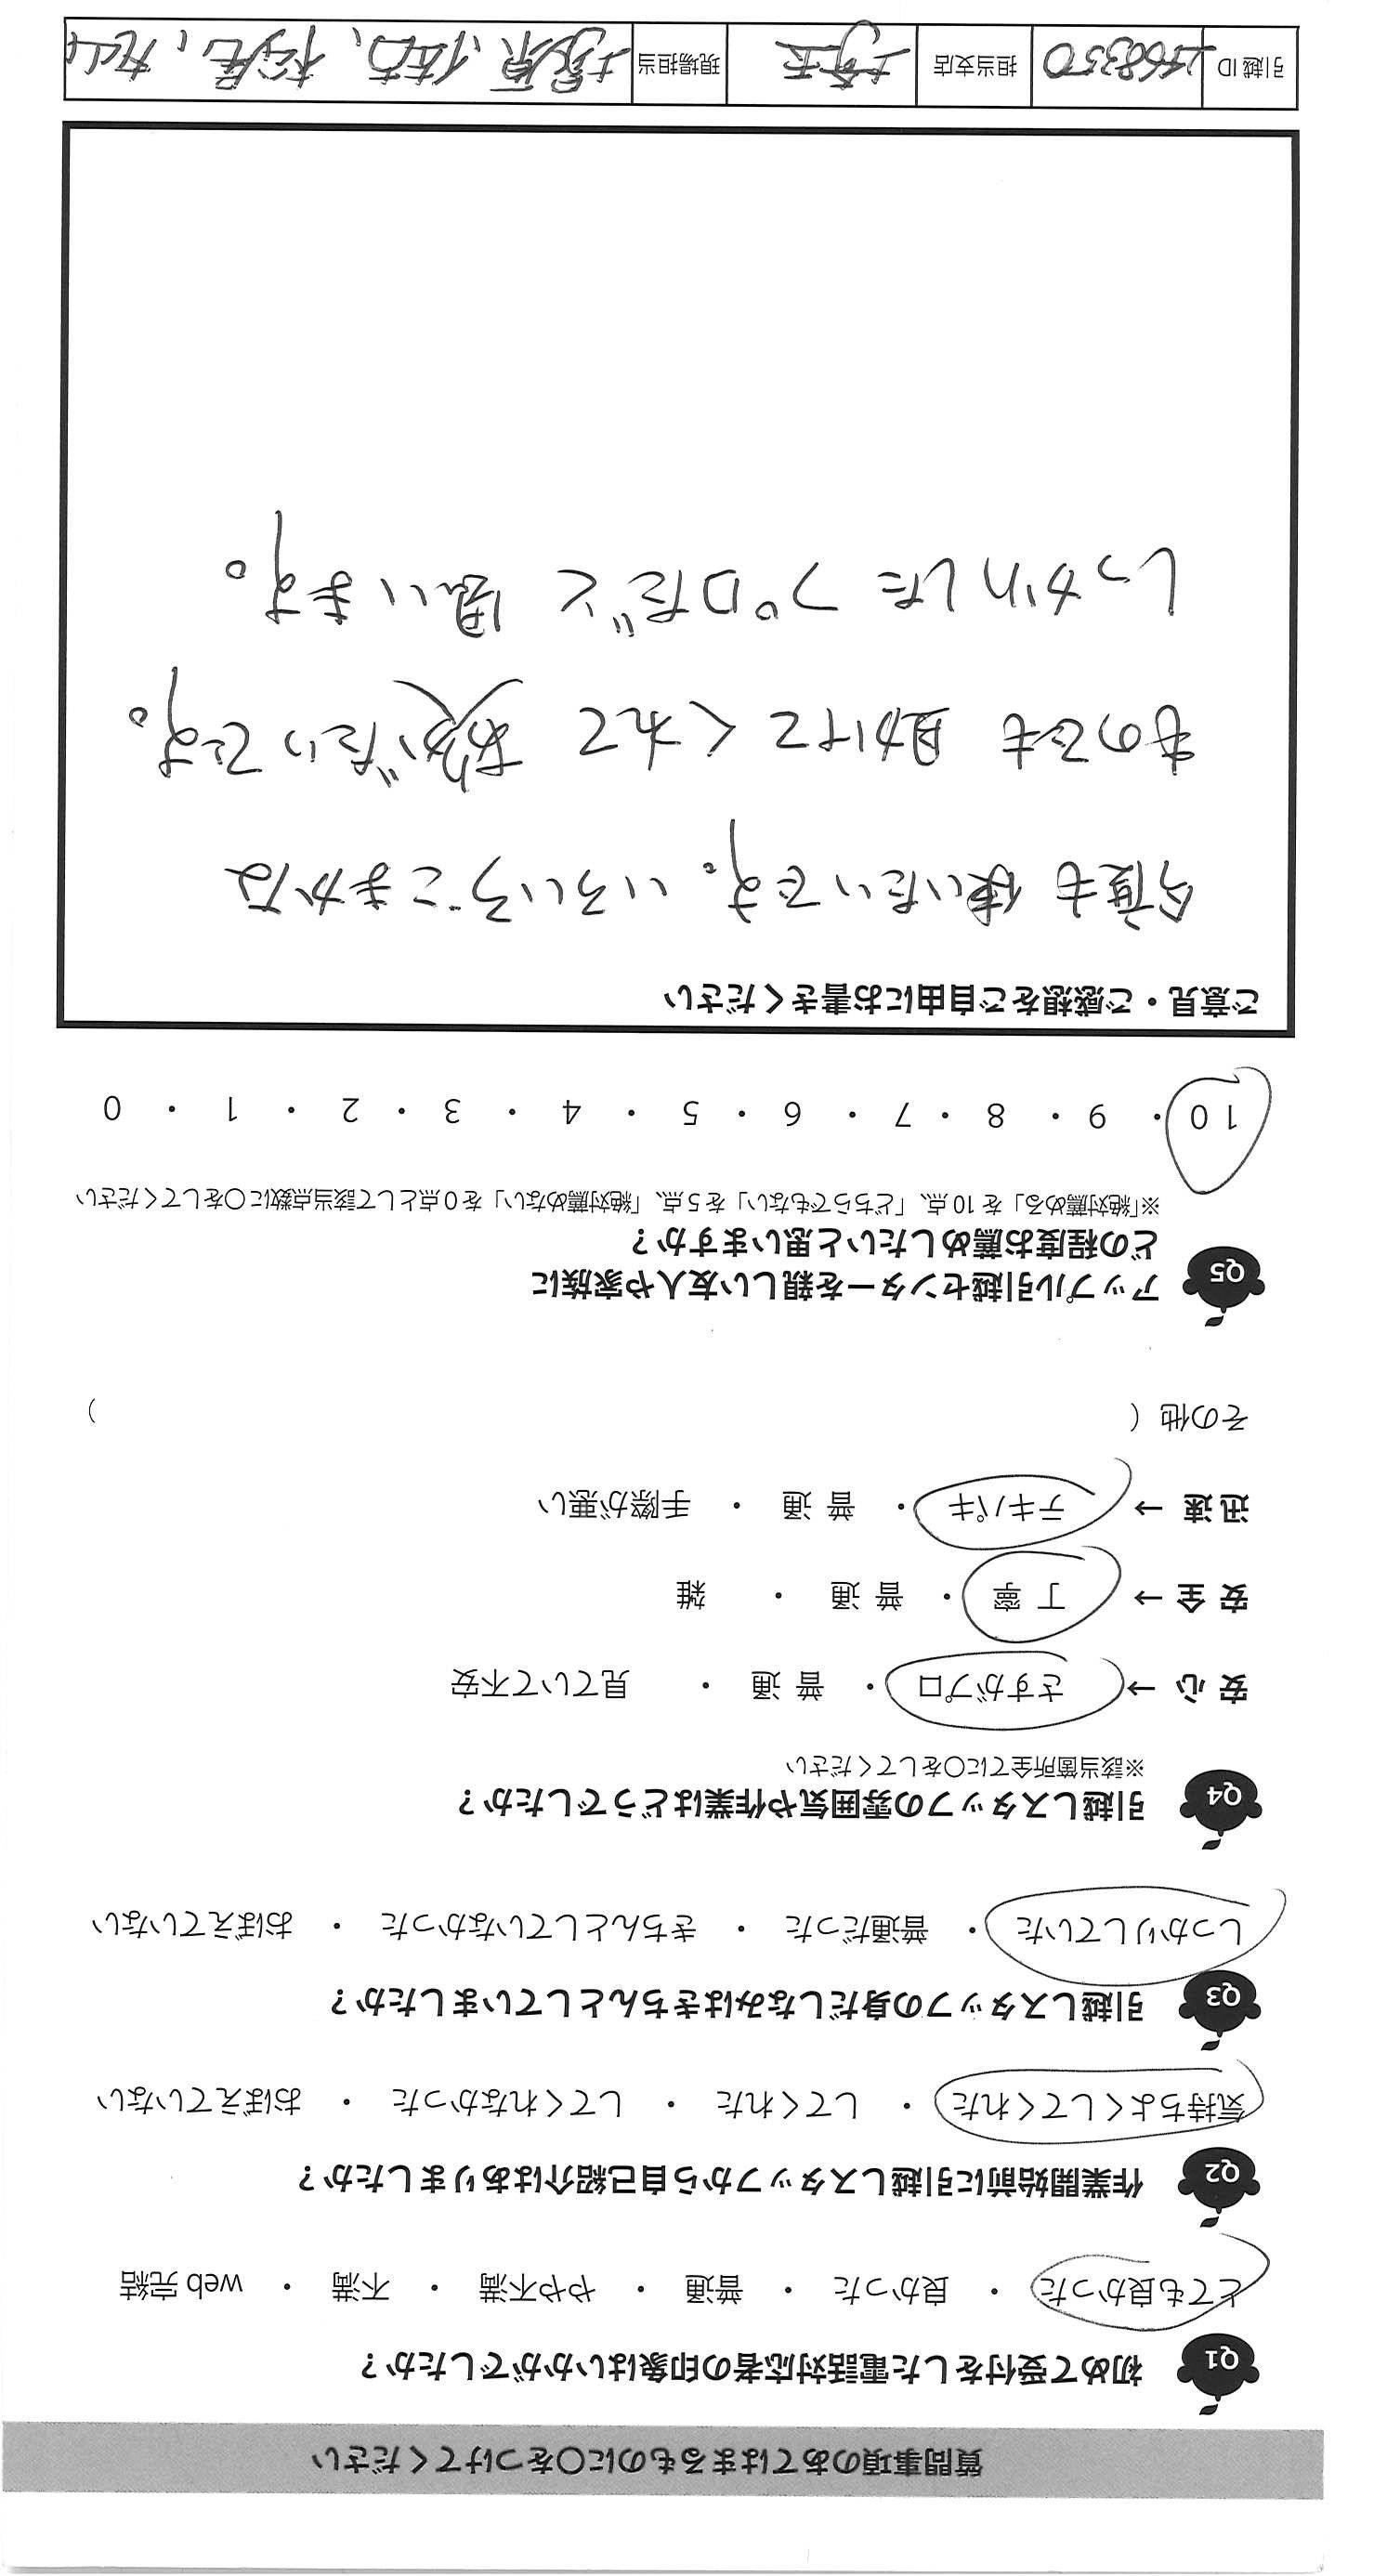 質問事項のあてはまるものに○をつけてください
Q1 初めて受付をした電話対応者の印象はいかがでしたか？
とても良かった ・ 良かった ・ 普通 ・ やや不満 ・ 不満 ・ web 完結
Q2 作業開始前に引越しスタッフから自己紹介はありましたか？
気持ちよくしてくれた ・ してくれた ・ してくれなかった ・ おぼえていない
Q3 引越しスタッフの身だしなみはきちんとしていましたか？
しっかりしていた ・ 普通だった ・ きちんとしていなかった ・ おぼえていない
Q4 引越しスタッフの雰囲気や作業はどうでしたか？
※該当箇所全てに○をしてください
安 心 → さすがプロ ・ 普 通 ・ 見ていて不安
安 全 → 丁 寧 ・ 普 通 ・ 雑
迅 速 → テキパキ ・ 普 通 ・ 手際が悪い
その他（ ）
Q5 アップル引越センターを親しい友人や家族に
どの程度お薦めしたいと思いますか？
※「絶対薦める」を 10 点、「どちらでもない」を 5 点、「絶対薦めない」を 0 点として該当点数に○をしてください
10 ・ 9 ・ 8 ・ 7 ・ 6 ・ 5 ・ 4 ・ 3 ・ 2 ・ 1 ・ 0
ご意見・ご感想をご自由にお書きください
今度も使いたいです。いろいろこまかな
ものでも助けてくれて ありがたいです。
しっかりした プロだと 思います。
引越 ID 2568350 担当支店 埼玉 現場担当 塚原、佐古、松尾、丸山